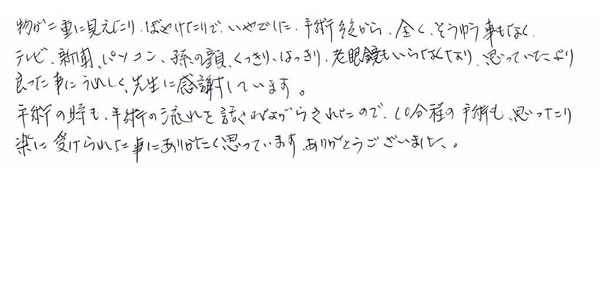 物が二重に見えたり、ぼやけたりで、いやでした。手術後から、全く、そうゆう事もなく、
テレビ、新聞、パソコン、孫の顔、くっきり、はっきり、老眼鏡もいらなくなり、思っていたより
良った事にうれしく、先生に感謝しています。
手術の時も、手術の流れを話されながらされたので、10分程の手術も、思ったより
楽に受けられた事にありがたく思っています。ありがとうございました。